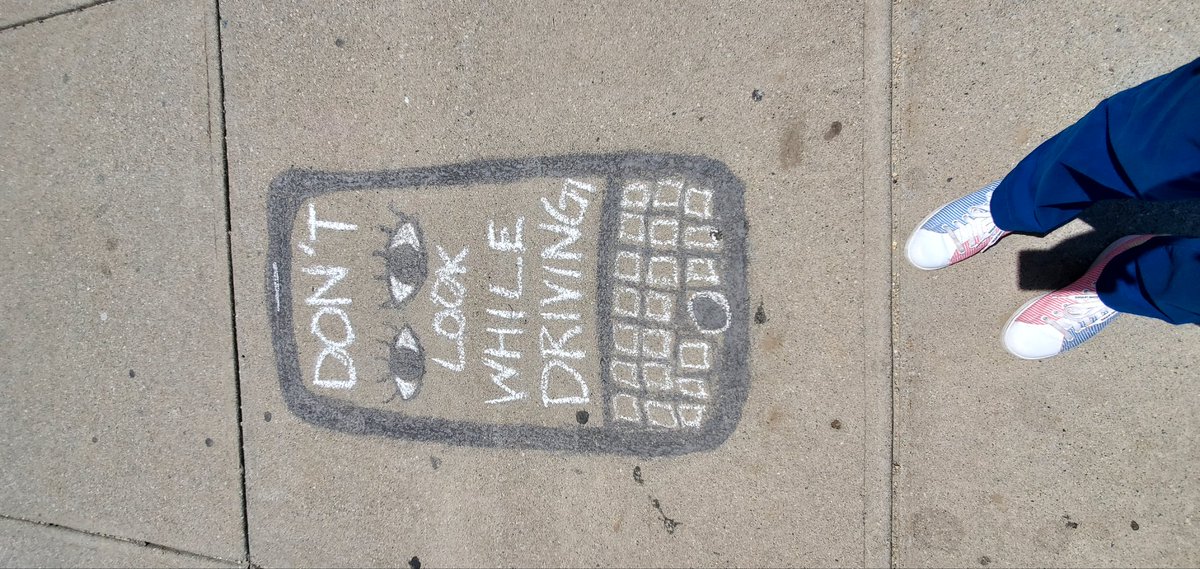 DON'T
LOOK
WHILE
DRIVING!